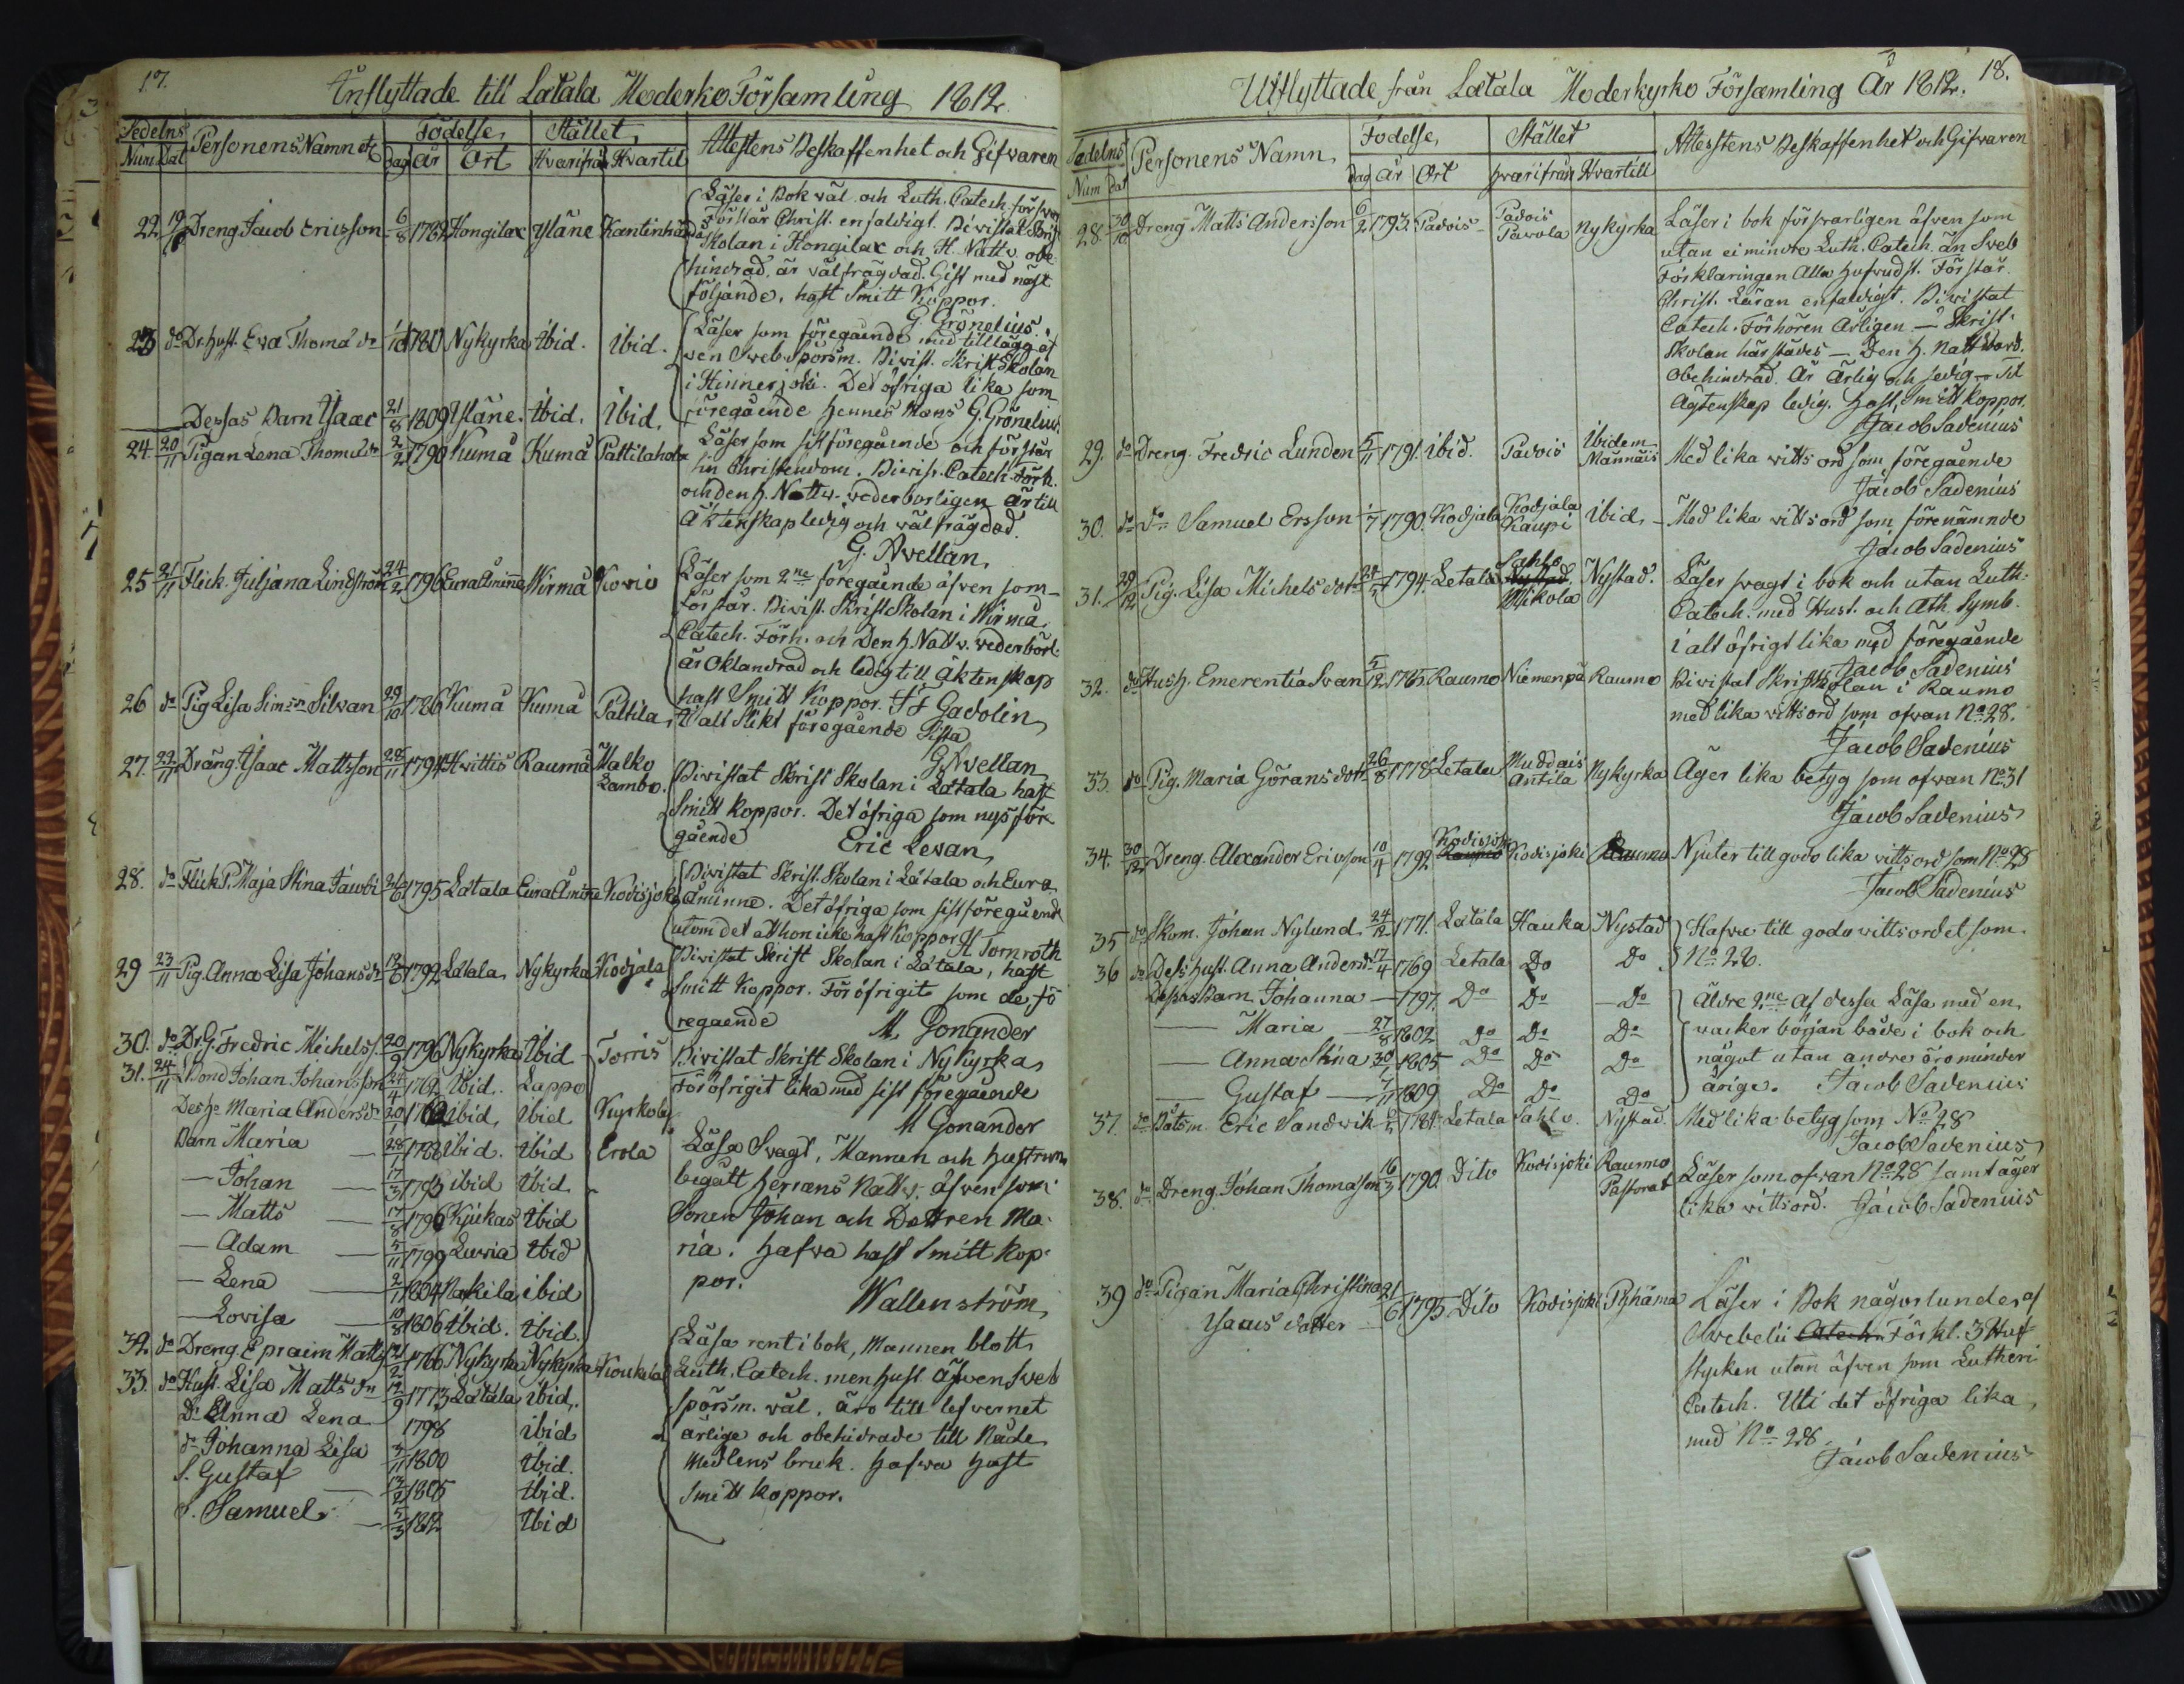 17.
Inflyttade till Letala Moderko Församling 1812
Sedelns
Num Dat
Personens Namn etc
Födelse
Dag År Ort
Stället
Hvarifrån Hvartil
Attestens Beskaffenhet och Gifvaren
22 Dreng Jacob Ericsson 6/8 1782 Hongilax Yläne Kantinhända
Läser i Bok väl och Luth. Catech. försvar
Förstår Christ. enfaldigt. Bivistat Skrift
Skolan i Hongilax och H. Nattv. obe-
hindrad, är välfrägdad. Gift med näst
följande, haft Smitt Koppor.
G. Grönelius
23 do Dr. Hust. Eva Thoma dr 1780 Nykyrka Ibid. Ibid.
Läser som föregående med tillägg af
ven Sweb. Spörsm. Bivist. Skrift Skolan
i Hinnerjoki. Det öfriga lika som
föregående hennes Mans G. Grönelius.
Dessas Barn Isaac 21/8 1809 Yläne. Ibid. Ibid.
24. 20/11 Pigan Lena Thomædr 2/2 1790 Kumå Kumå Pättilahola
Läser som sistföregående och förstår
sin Christendom. Bivist. Catech. Förh.
och den H. Nattv. vederborligen är till
Äktenskap ledig och wälfrägdad.
G. Avellan
25 21/11 Flick. Juljana Lindström 24/2 1796 Eura Åminne Wirmå Kovio
Läser som 2ne föregående äfven som
Förstår. Bivist. Skrift Skolan i Wirmå
Catech. Förh. och Den H. Nattv. vederbörl.
är Oklandrad och ledig till Äktenskap
haft Smitt Koppor. JF Gadolin
26 do Pig Lisa Simsdr Silvan 29/10 1786 Kumå Kumå Pältila
I alt slikt föregående Sista
G. Avellan
27. 22/11 Dräng. Isaac Mattsson 28/11 1794 Hvittis Raumå Walko Lambo.
Bivistat Skrift Skolan i Letala haft
Smitt koppor. Det öfriga som nyss före-
gående Eric Levan
28. do Flick. P. Maja Stina Jacobi 21/6 1795 Letala Eura Åminne Kodisjoki
Bivistat Skrift. Skolan i Letala och Eura
Åminne. Det öfriga som sist föregående
utom det att hon icke haft Koppor. H Tornroth
29 23/11 Pig. Anna Lisa Johansdr 1792 Letala Nykyrka Kodjala
Bivistat Skrift Skolan i Letala, haft
Smitt Koppor. För öfrigit som de fö
regående M. Gonander
30. do Dr. G. Fredric Michels s. 20/9 1796 Nykyrka Ibid Torris
Bivistat Skrift Skolan i Nykyrka
För öfrigit lika med sist föregående
M Gonander
31. 24/11 Bond Johan Johansson 24/4 1762 Ibid. Lappo
Des H. Maria Andersdr Ibid. Ibid Kuskola
Barn Maria 1788 Ibid. Ibid Erola
— Johan 17/3 1793 ibid Ibid
— Matts 1796 Kjukas Ibid
— Adam 5/11 1799 Luvia Ibid
— Lena 2/11 1804 Nakila ibid
— Lovisa 10/8 1806 Ibid. Ibid.
Läsa Svagt, Mannen och Hustrun
begått Herrans Nattv. äfven som
Sonen Johan och Dottren Ma-
ria. Hafva haft Smitt kop-
por.
Wallenström
32. do Dreng Epraim Matts 1766 Nykyrka Nykyrka Koukela
33. do Hust. Lisa Matts dr 12/9 1773 Letala ibid.
Dr Anna Lena 1798 ibid
dr Johanna Lisa 3/11 1800 Ibid.
S. Gustaf 1805 Ibid.
S. Samuel 5/3 1812 Ibid
Läsa rent i bok, Mannen blott
Luth. Catech. men Hust. äfven Sweb
spörsm. väl, äro till lefvernet
ärlige och obehidrade till Nåde
Medlens bruk. Hafva Haft
Smitt koppor.
18.
Utflyttade från Letala Moderkyrko Församling År 1812.
Sedelns
Num Dat
Personens Namn
Fodelse
Dag År Ort
Stället
Hvarifrån Hvartill
Attesstens Beskaffenhet och Gifvaren
28. 30/10 Dreng Matts Andersson 6/2 1793. Padois Padois Pavola Nykyrka
Läser i bok försvarligen äfven som
utan ei mindre Luth. Catech. än Sveb
Förklaringen Alla hufvudst. Förstår
Christ. Läran enfaldigt. Bivistat
Catech. Förhören Årligen — Skrift-
Skolan härstädes — Den H. Nattvard.
Obehindrad. Är Ärlig och sedig — Til
Ägtenskap ledig. Haft Smitt koppor.
Jacob Sadenius
29. do Dreng. Fredric Lunden 5/11 1791. ibid. Padois Ibidem Männäis
Med lika witts ord som föregående
Jacob Sadenius
30. do do Samuel Ersson 1790. Kodjala Kodjala Kaupi ibid.
Med lika witts ord som förenämnde
Jacob Sadenius
31. 29/12 Pig. Lisa Michels dotr 1794. Letala Sahlo Mikola Nystad.
Läser svagt i bok och utan Luth.
Catech. med Hust. och Ath. Symb.
i alt öfrigt lika med föregående
Jacob Sadenius
32. do Hush. Emerentia Svan 5/12 1765. Raumo Niemenpä Raumo
Bivistat Skriftskolan i Raumo
med lika wittsord som ofvan No 28.
Jacob Sadenius
33. do Pig. Maria Görans dotr 26/8 1778 Letala Muddais Antila Nykyrka
Äger lika betyg som ofwan No 31
Jacob Sadenius
34. 30/12 Dreng. Alexander Ericsson 10/4 1792 Kodisjoki Kodisjoki Raumo
Njuter till godo lika witts ord som No 28
Jacob Sadenius
35 do Skom. Johan Nylund 24/12 1771. Letala Hauka Nystad
36 do Dess hust. Anna Andersdr 17/4 1769 Letala Do Do
Hafva till godo wittsordet som
No 28.
Dessas Barn Johanna — 1797. Do Do — Do
— Maria — 27/8 1802 Do Do Do
— Anna Stina 1805 Do Do Do
— Gustaf — 7/11 1809 Do Do Do
Äldre 2ne af dessa Läsa med en
vacker början både i bok och
något utan andre äro minder
årige. Jacob Sadenius
37. do Båtsm. Eric Sandwik 1781. Letala Sahlo. Nystad.
Med lika betyg som No 28
Jacob Sadenius
38. do Dreng. Johan Thomasson 16/3 1790. Dito Kodisjoki Raumo Pastorat
Läser som ofvan No 28 samt äger
lika wittsord. Jacob Sadenius
39 do Pigan Maria Christina 21/6 1795 Dito Kodisjoki Pyhäma
Isaacs dotter
Läser i Bok någorlunda, af
Svebelii Catech. Förkl. 3 Huf-
stycken utan äfven som Lutheri
Catech. Uti det öfriga lika
med No 28.
Jacob Sadenius